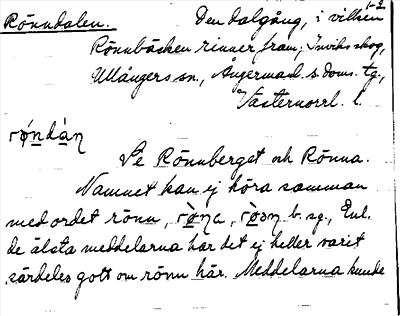 1-2
Rönndalen. Den dalgång, i vilken
Rönnbäcken rinner fram; Inviks skog,
Ullångers sn, Ångermanl. s. doms. tg.,
Västernorrl. l.
Se Rönnberget och Rönna.
Namnet kan ej höra samman
med ordet rönn, b. sg., Enl.
de älsta meddelarna har det ej heller varit
särdeles gott om rönn här. Meddelarna kunde